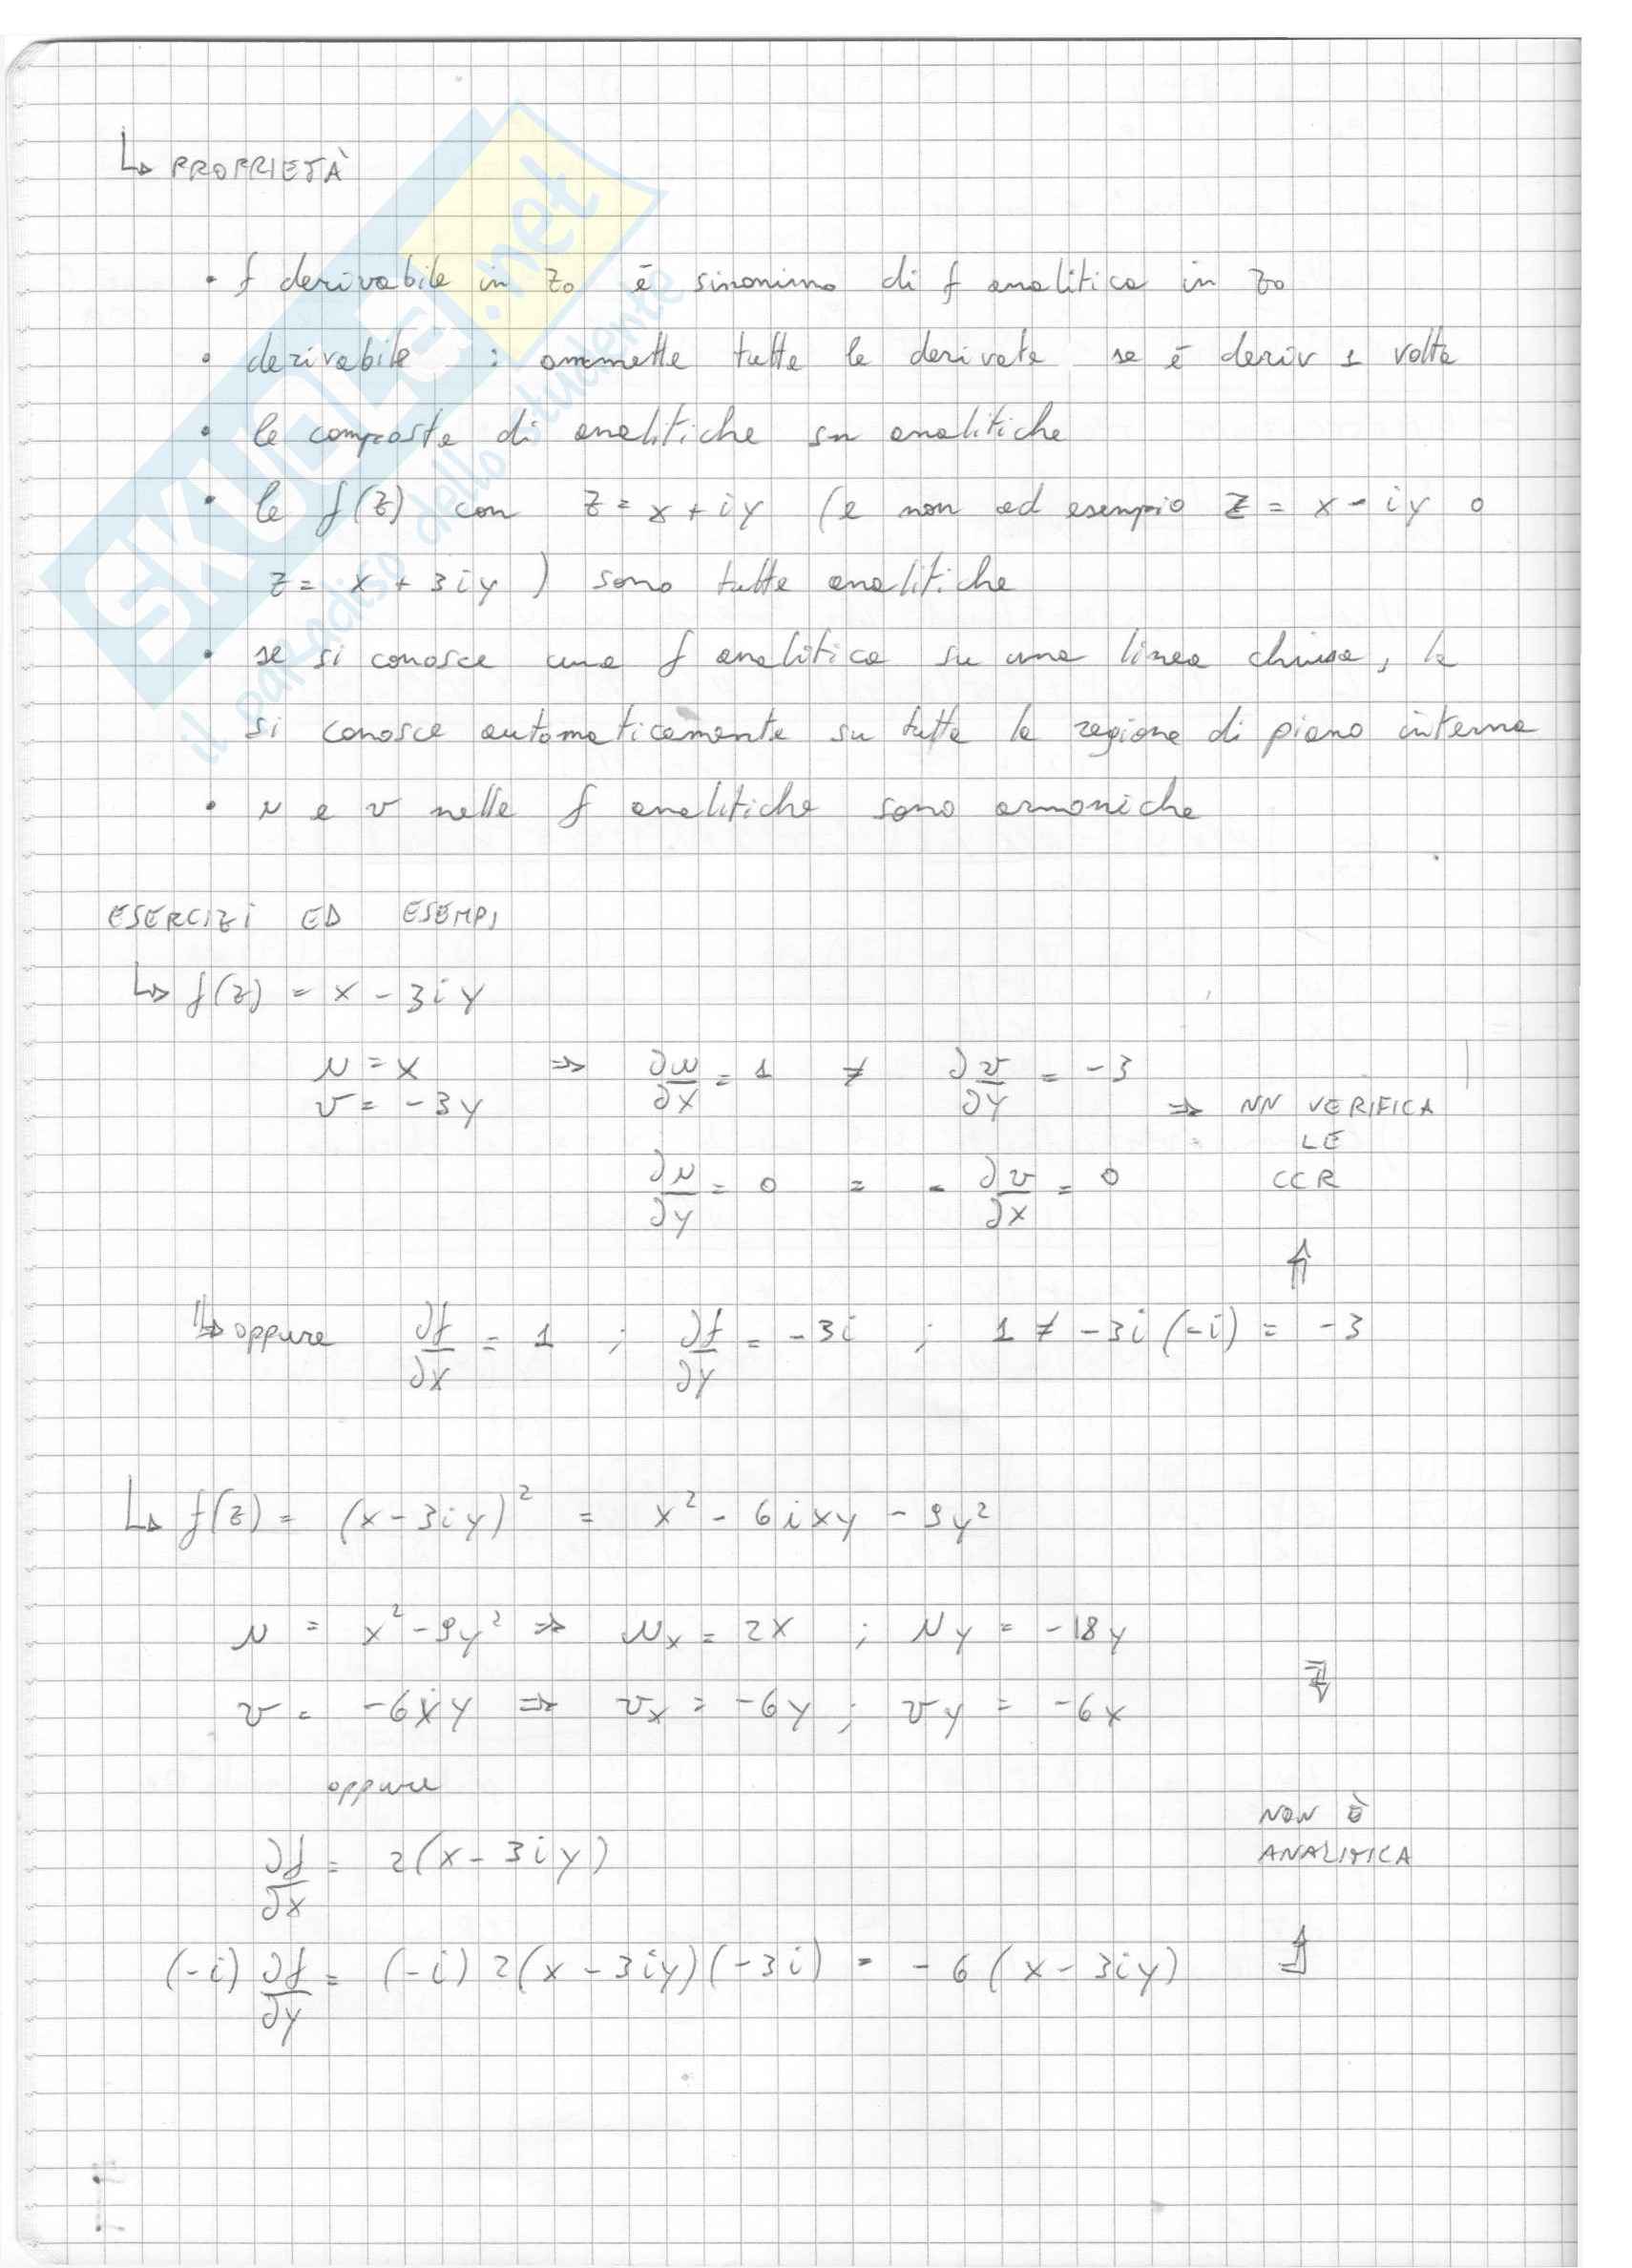 ↳ PROPRIETÀ
• f derivabile in z₀ è sinonimo di f analitica in z₀
• derivabile : ammette tutte le derivate se è deriv 1 volta
• le composte di analitiche sn analitiche
• le f(z) con z = x + iy (e non ad esempio z = x - iy o
z = x + 3iy ) sono tutte analitiche
• se si conosce una f analitica su una linea chiusa, la
si conosce automaticamente su tutta la regione di piano interna
• u e v nelle f analitiche sono armoniche
ESERCIZI ED ESEMPI
↳ f(z) = x - 3iy
u = x ⇒ ∂u/∂x = 1 ≠ ∂v/∂y = -3
v = -3y ⇒ NN VERIFICA
LE
∂u/∂y = 0 = - ∂v/∂x = 0 CCR
⇑
↳ oppure ∂f/∂x = 1 ; ∂f/∂y = -3i ; 1 ≠ -3i(-i) = -3
↳ f(z) = (x-3iy)² = x² - 6ixy - 9y²
u = x² - 9y² ⇒ uₓ = 2x ; u_y = -18y
v = -6xy ⇒ vₓ = -6y ; v_y = -6x ⇓
oppure
NON È
∂f/∂x = 2(x - 3iy) ANALITICA
(-i) ∂f/∂y = (-i) 2(x - 3iy)(-3i) = -6(x - 3iy) ⇑
SKUOLA.net
il paradiso dello studente